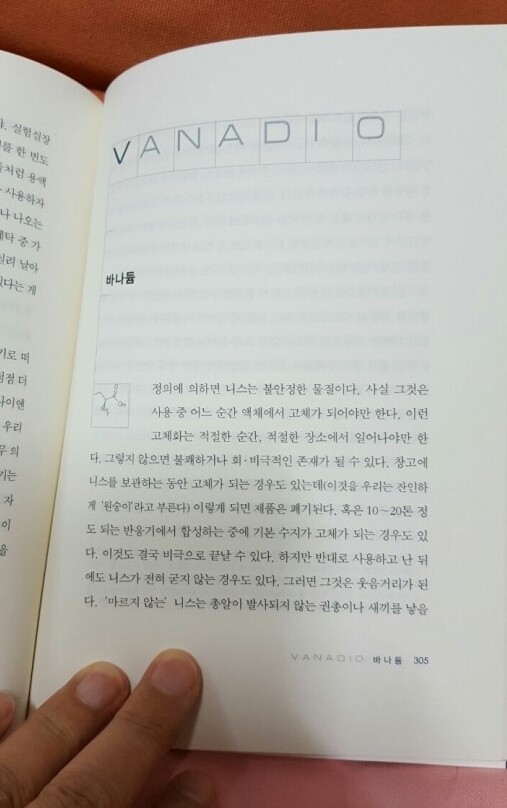 가. 실험실장
를 한 번도
처럼 용액
사용하자
나 나오는
세탁 중 가
밀려 날아
있다는 게
기로 떠
점점 더
다이엔
우리
무 의
기는
자
이
을
VANADIO
바나듐
정의에 의하면 니스는 불안정한 물질이다. 사실 그것은
사용 중 어느 순간 액체에서 고체가 되어야만 한다. 이런
고체화는 적절한 순간, 적절한 장소에서 일어나야만 한
다. 그렇지 않으면 불쾌하거나 희·비극적인 존재가 될 수 있다. 창고에
니스를 보관하는 동안 고체가 되는 경우도 있는데(이것을 우리는 잔인하
게 '원숭이'라고 부른다) 이렇게 되면 제품은 폐기된다. 혹은 10~20톤 정
도 되는 반응기에서 합성하는 중에 기본 수지가 고체가 되는 경우도 있
다. 이것도 결국 비극으로 끝날 수 있다. 하지만 반대로 사용하고 난 뒤
에도 니스가 전혀 굳지 않는 경우도 있다. 그러면 그것은 웃음거리가 된
다. '마르지 않는' 니스는 총알이 발사되지 않는 권총이나 새끼를 낳을
VANADIO 바나듐 305